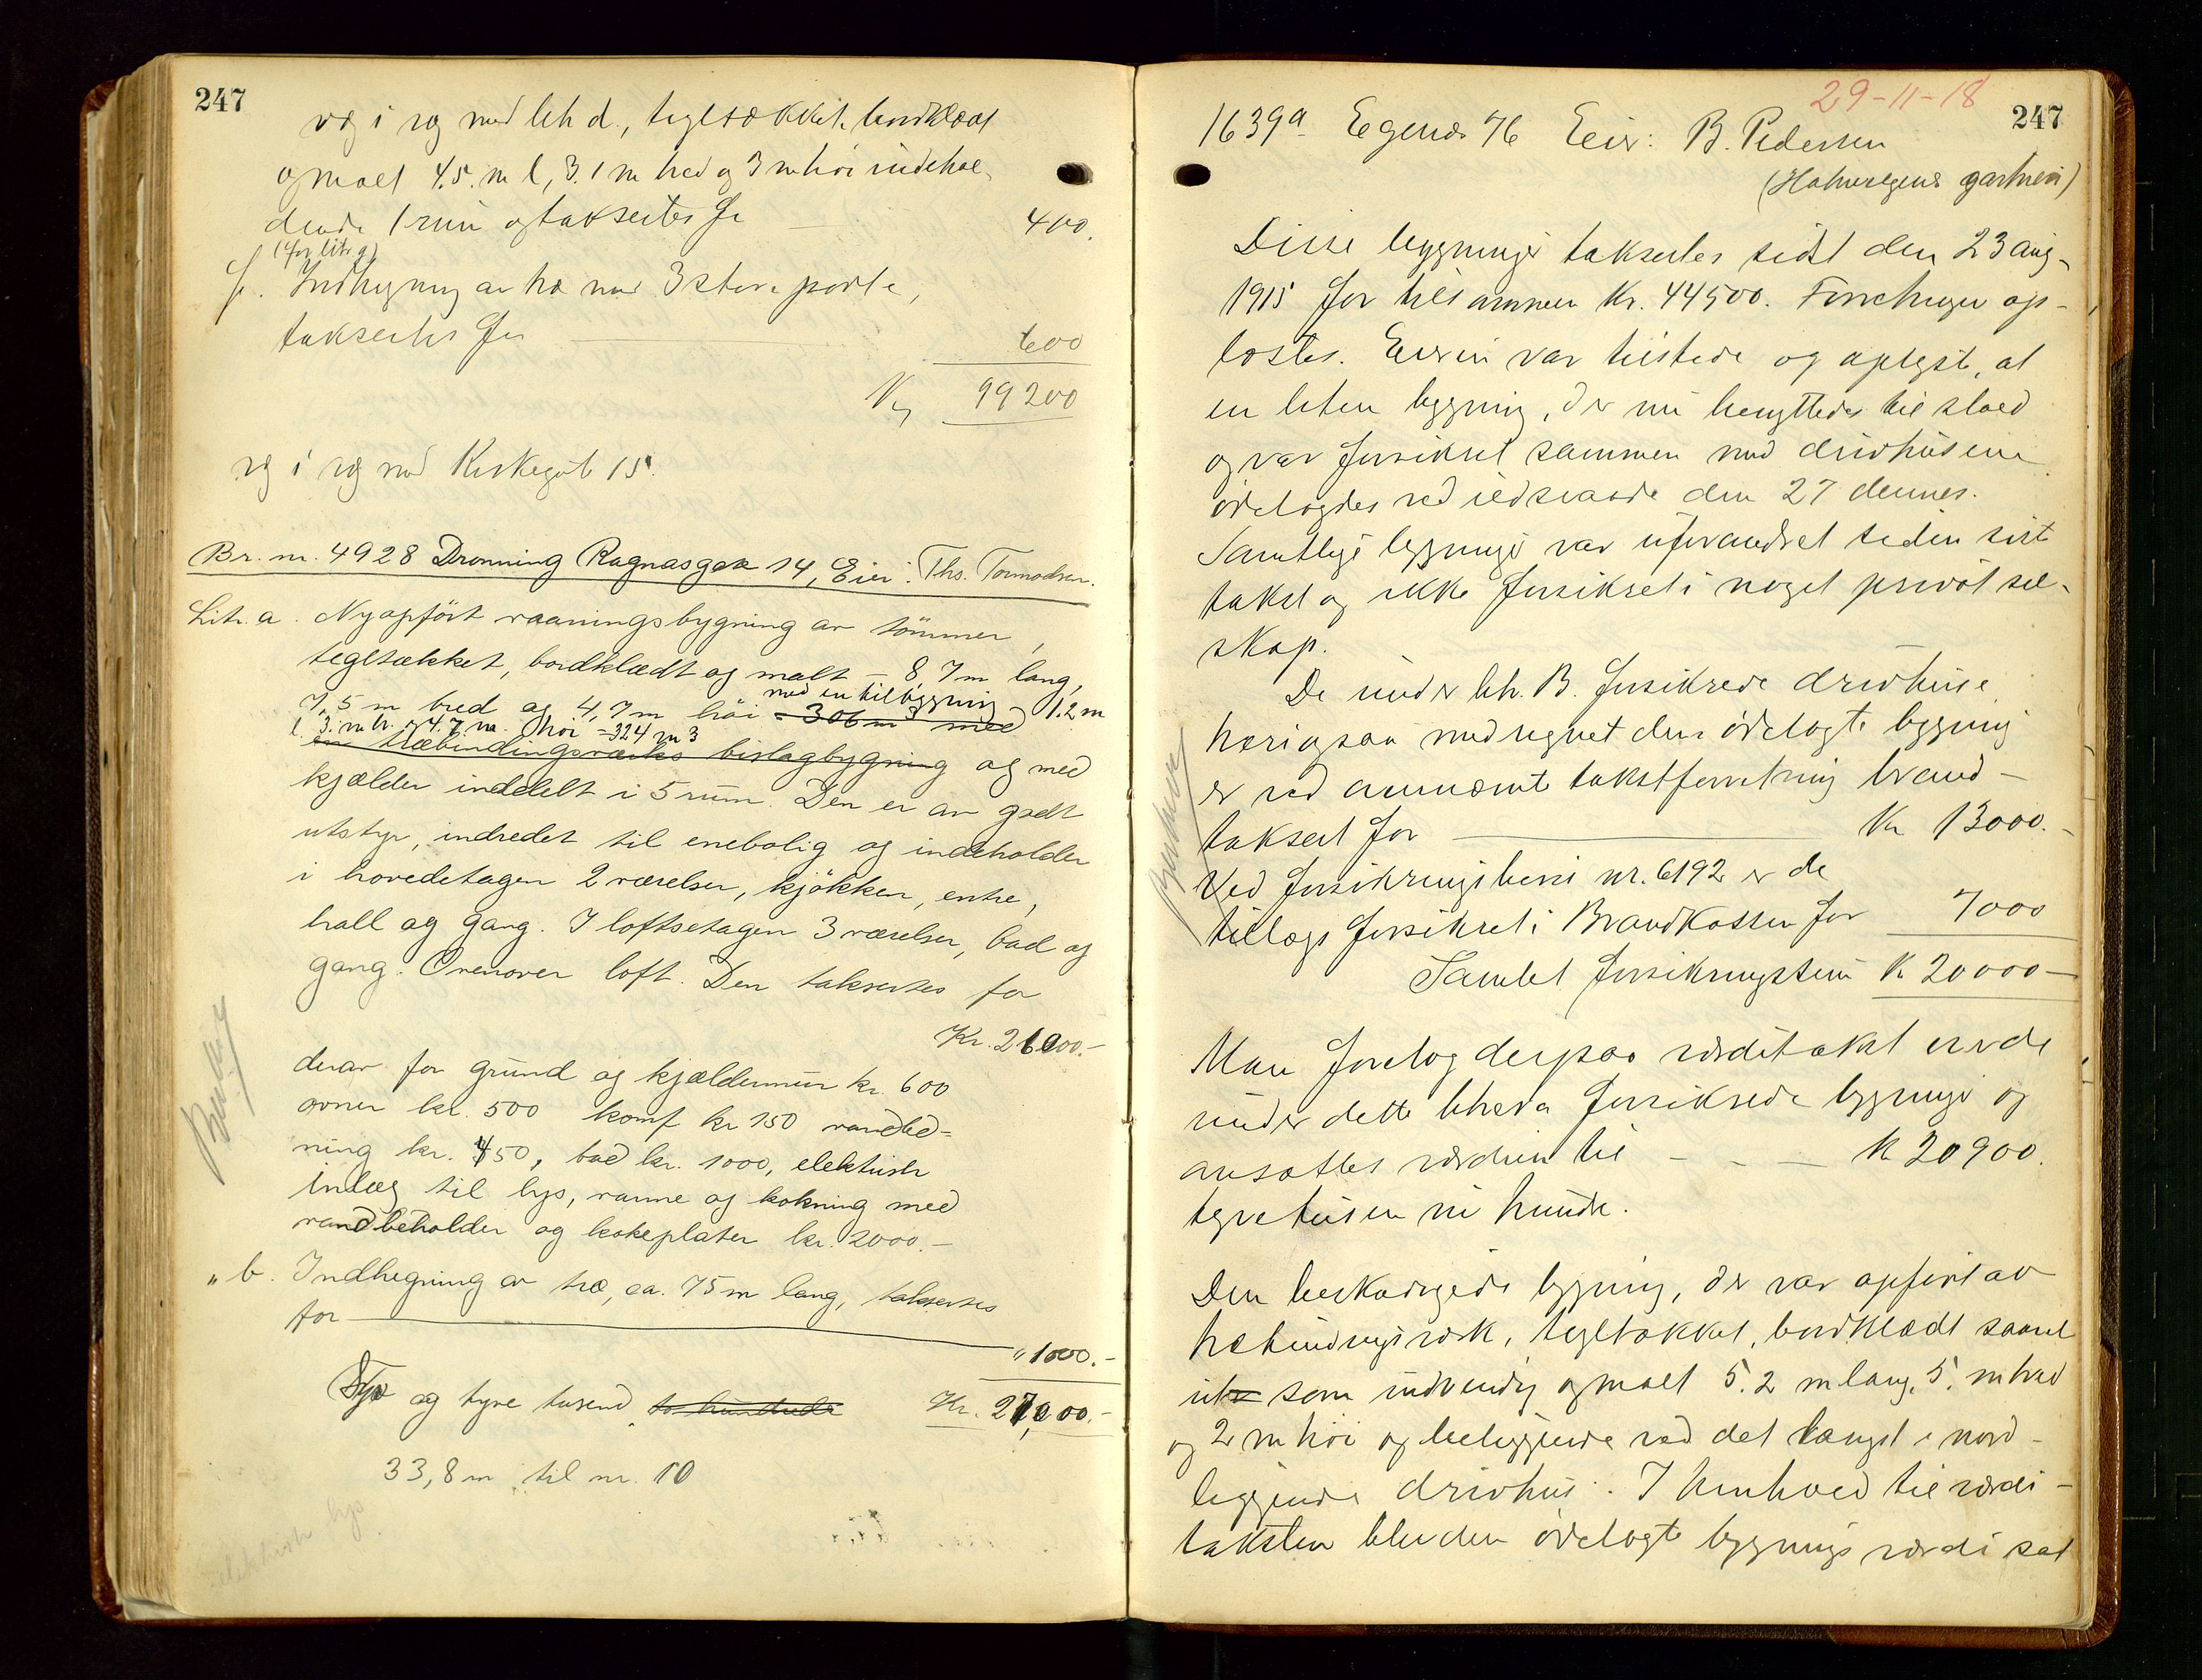 247
væg i væg med lit d., tegltækket, bordklædt
og malt 4.5. m l, 3.1 m bred og 3 m høi indehol-
dende 1 rum og takseertes for 400.
(før litr g)
f. Indhegning av træ med 3 store porte,
takseertes for 600
Kr 99200
væg i væg med Kirkegat 15.
Br. nr. 4928 Dronning Ragnasgate 14, Eier: Ths. Tormodsen.
Litr. a. Nyopført vaaningsbygning av tömmer,
tegltækket, bordklædt og malt – 8,7m lang,
med en tilbygning 1.2 m
7,5 m bred og 4,7m höi = 306 m³ med
l. 3. m br. og 4.7 m. høi = 324 m3
en træbindingsværks bislagbygning og med
kjælder inddelt i 5 rum. Den er av godt
utstyr, indredet til enebolig og indeholder
i hovedetagen 2 værelser, kjökken, entre,
hall og gang. I loftsetagen 3 værelser, bad og
gang. Ovenover loft. Den takseertes for
Kr. 26000.–
derav for grund og kjældermur kr. 600
ovner kr. 500 komf kr 150 vandled-
ning kr. 450, bad kr. 1000, elektrisk
inlæg til lys, varme og kokning med
vandbeholder og kokeplater kr. 2000.–
„ b. Indhegning av træ, ca. 75 m lang, takseertes
for „ 1000.–
Syv og tyve tusend to hundrede Kr. 27,000.–
33,8 m til nr. 10
elektrisk lys
29-11-18
247
1639a Egenes 76 Eier: B. Pedersen
(Hahnsegenes gartneri)
Disse bygninger takseertes sidst den 23 aug.
1915 for tilsammen Kr. 44500. Forretningen op-
læstes. Eieren var tilstede og oplyste, at
en liten bygning, der nu benyttedes til stald
og var forsikret sammen med drivhusene
ødelagdes ved ildsvaade den 27 dennes.
Samtlige bygninger var uforandret siden sist
takst og ikke forsikret i noget privat sel-
skap.
De under litr. B. forsikrede drivhuse
heri ogsaa medregnet den ødelagte bygning
er ved ovennævnte takstforretning brand-
taksert for Kr 13000.–
Ved forsikringsbevis nr. 6192 er de
tillægs forsikret i Brandkassen for 7000
Samlet forsikringssum Kr 20000–
Man foretog derpaa værditakst over de
under dette litera forsikrede bygninger og
ansattes værdien til – – – Kr 20900.
tyvetusen ni hundr.
Den beskadigede bygning, der var opført av
træbindingsværk, tegltækket, bordklædt saavel
utv som indvendig og malt 5.2 m lang, 5. m bred
og 2 m höi og beliggende ved det længst i nord-
liggende drivhus. I henhold til værdi-
taksten blev den ødelagte bygnings værdi sat